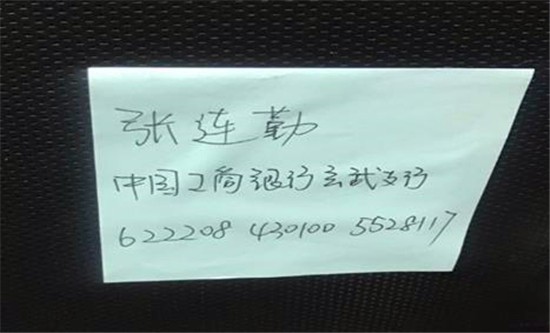 张连勤
中国工商银行玄武支行
622208 430100 5528117